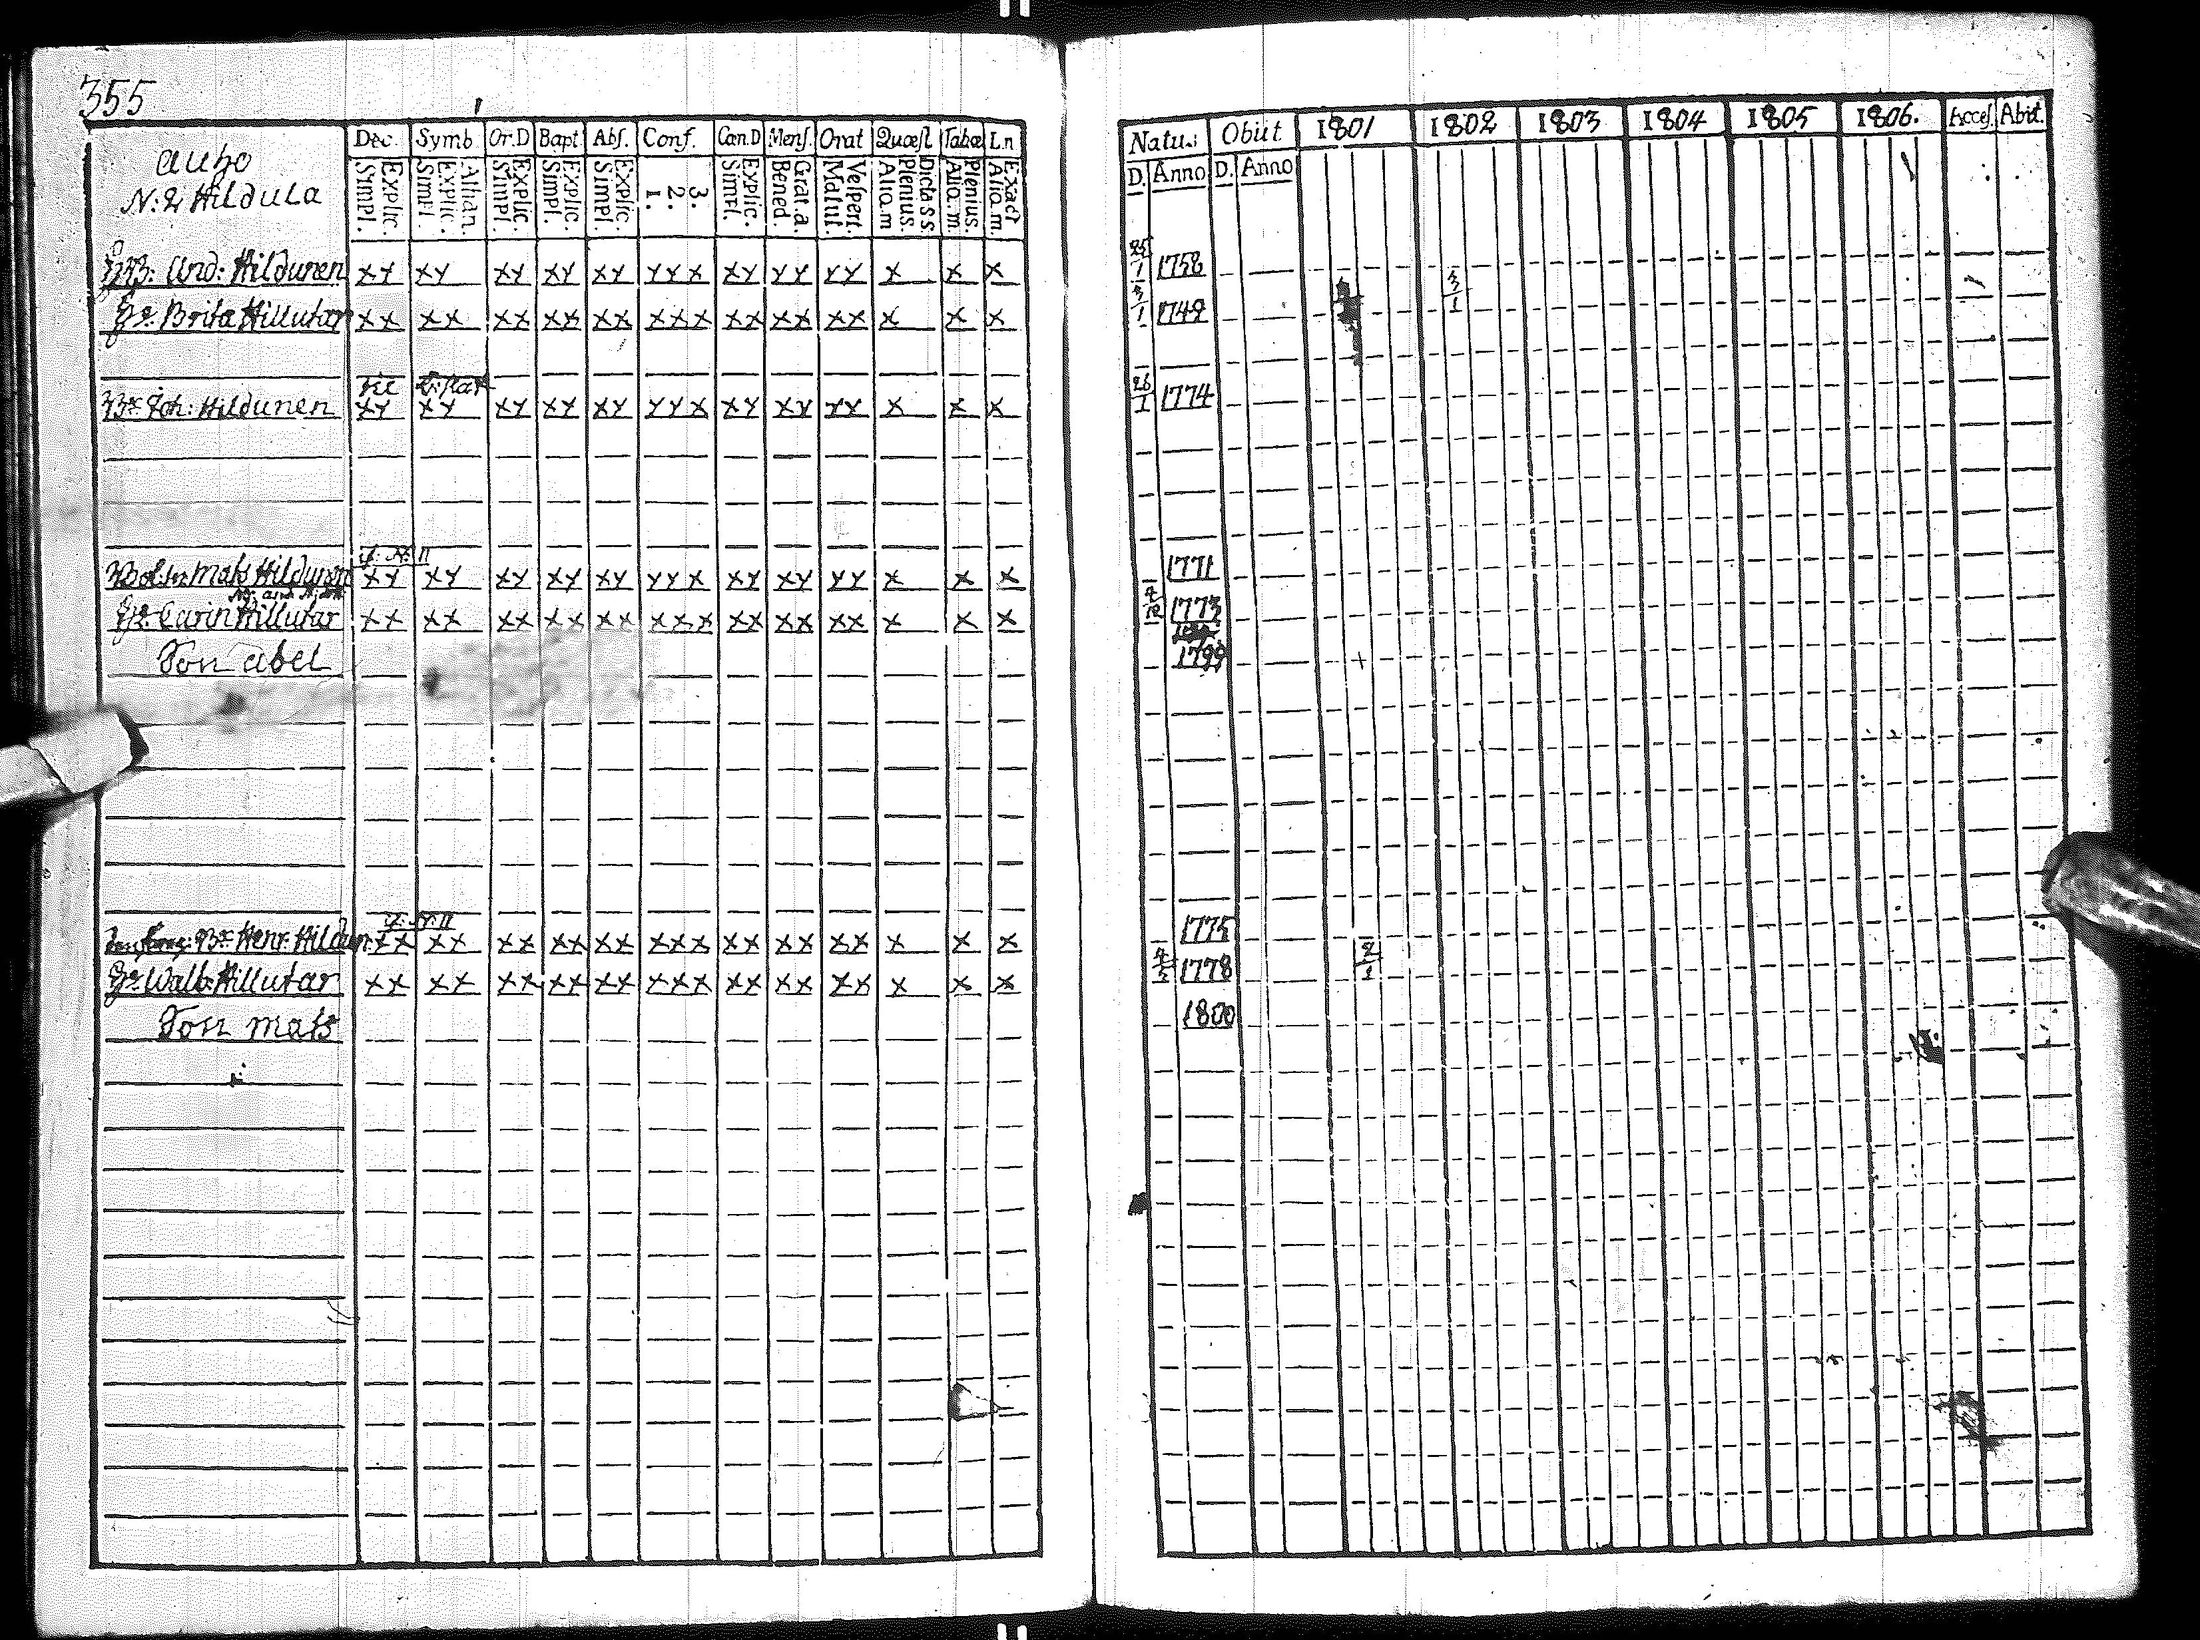 355
Dec. Symb. Or.D Bapt. Abſ. Conf. Can.D Menſ. Orat Quæſt Tabæ L.n
Explic. Simpl. Athan. Explic. Simpl. Explic. Simpl. Explic. Simpl. Explic. Simpl. 3. 2. 1. Explic. Simpl. Grat.a. Bened. Veſpert. Matut. Dicta s s Plenius. Alio.m Plenius. Alio.m. Exact Alio.m.
Auho
N: 2 Hildula
And: Hildunen xx xx xx xx xx xxx xx xx xx x x x
Brita Hillutar xx xx xx xx xx xxx xx xx xx x x x
Joh: Hildunen xx xx xx xx xx xxx xx xx xx x x x
Mats Hildunen xx xx xx xx xx xxx xx xx xx x x x
Carin Hillutar xx xx xx xx xx xxx xx xx xx x x x
Son Abel
Henr: Hildun: xx xx xx xx xx xxx xx xx xx x x x
Walb: Hillutar xx xx xx xx xx xxx xx xx xx x x x
Son Mats
Natus Obiit 1801 1802 1803 1804 1805 1806. Acceſ. Abiit.
D. Anno D. Anno
25/1 1758
3/1 1749 3/1
26/1 1774
1771
1773
1799
1775
1778 2/1
1800